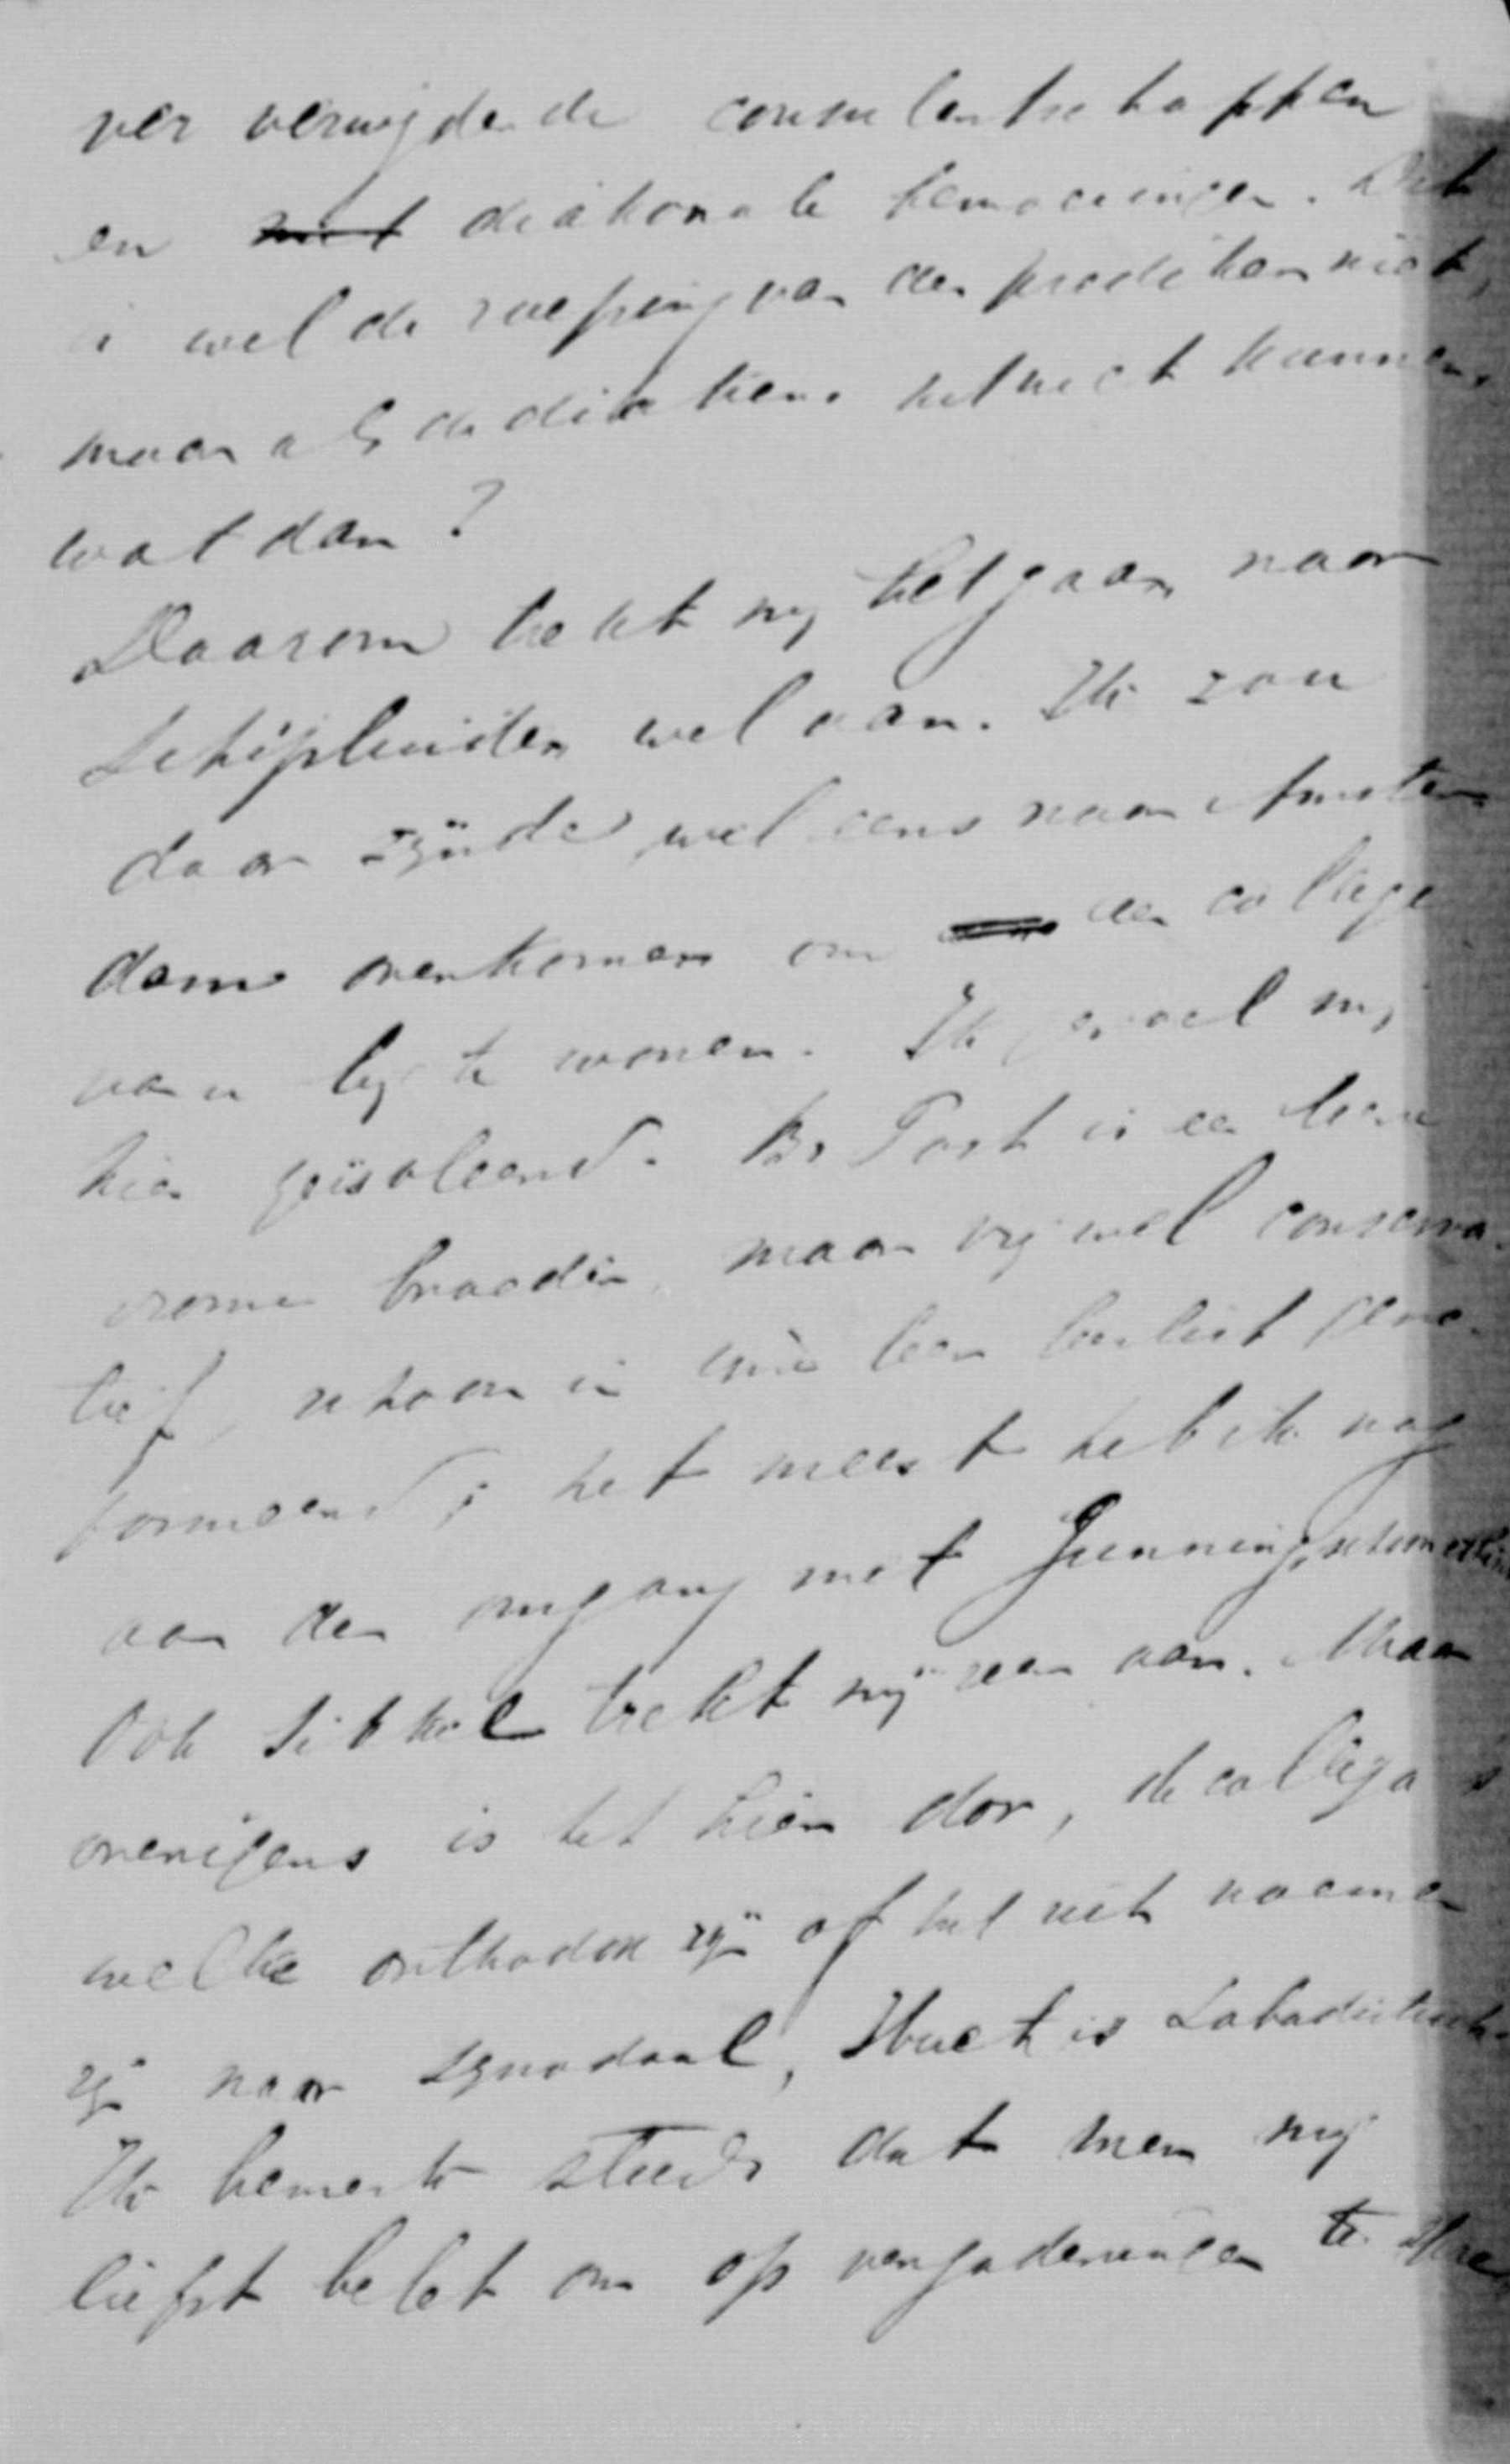 ver verwijderde consulentschappen
en niet diakonale bemoeiingen. Dit
is wel de roeping van den predikant niet,
maar als de diakenen het niet kunnen,
wat dan?
Daarom trekt mij het gaan naar
Schipluiden wel aan. Ik zou
daar zijnde wel eens naar Amster-
dam overkomen om een college
van u bij te wonen. Ik gevoel mij
hier geïsoleerd. Br Post is een
vrome broeder, maar vrij wel conserva-
tief, schoon in
formeerd; het meest heb ik nog
aan den omgang met Gunning, schoon
Ook Sikkel trekt mij zeer aan. Maar
overigens is het hier dor, de collega's
welke orthodox zijn of het zich noemen
zijn naar synodaal, Huet is Labadistisch.
Ik bemerk steeds dat men mij
liefst belet om op vergaderingen te